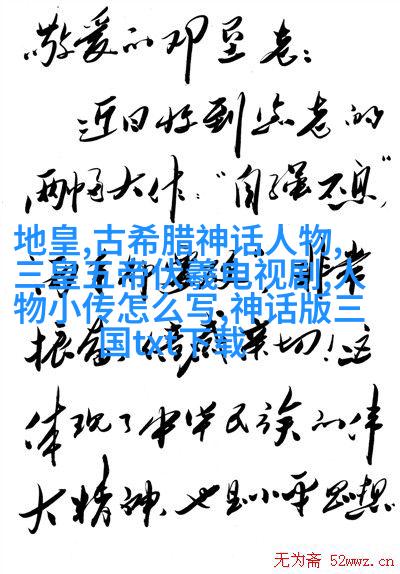 敬爱的邓垦老：
近日收到您老的
两幅大作："自强不息"
地皇,古希腊神话人物,
三皇五帝伏羲电视剧,人
物小传怎么写,神话版三
国txt下载
非常
振奋，倍感亲切！这
体现了中华民族的伟
大精神，也是小平思想
无为斋 52wwz.cn